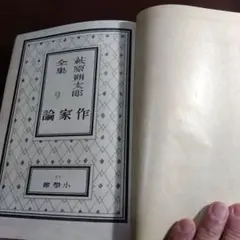 萩原朔太郎
全集
9
作家論
小學館